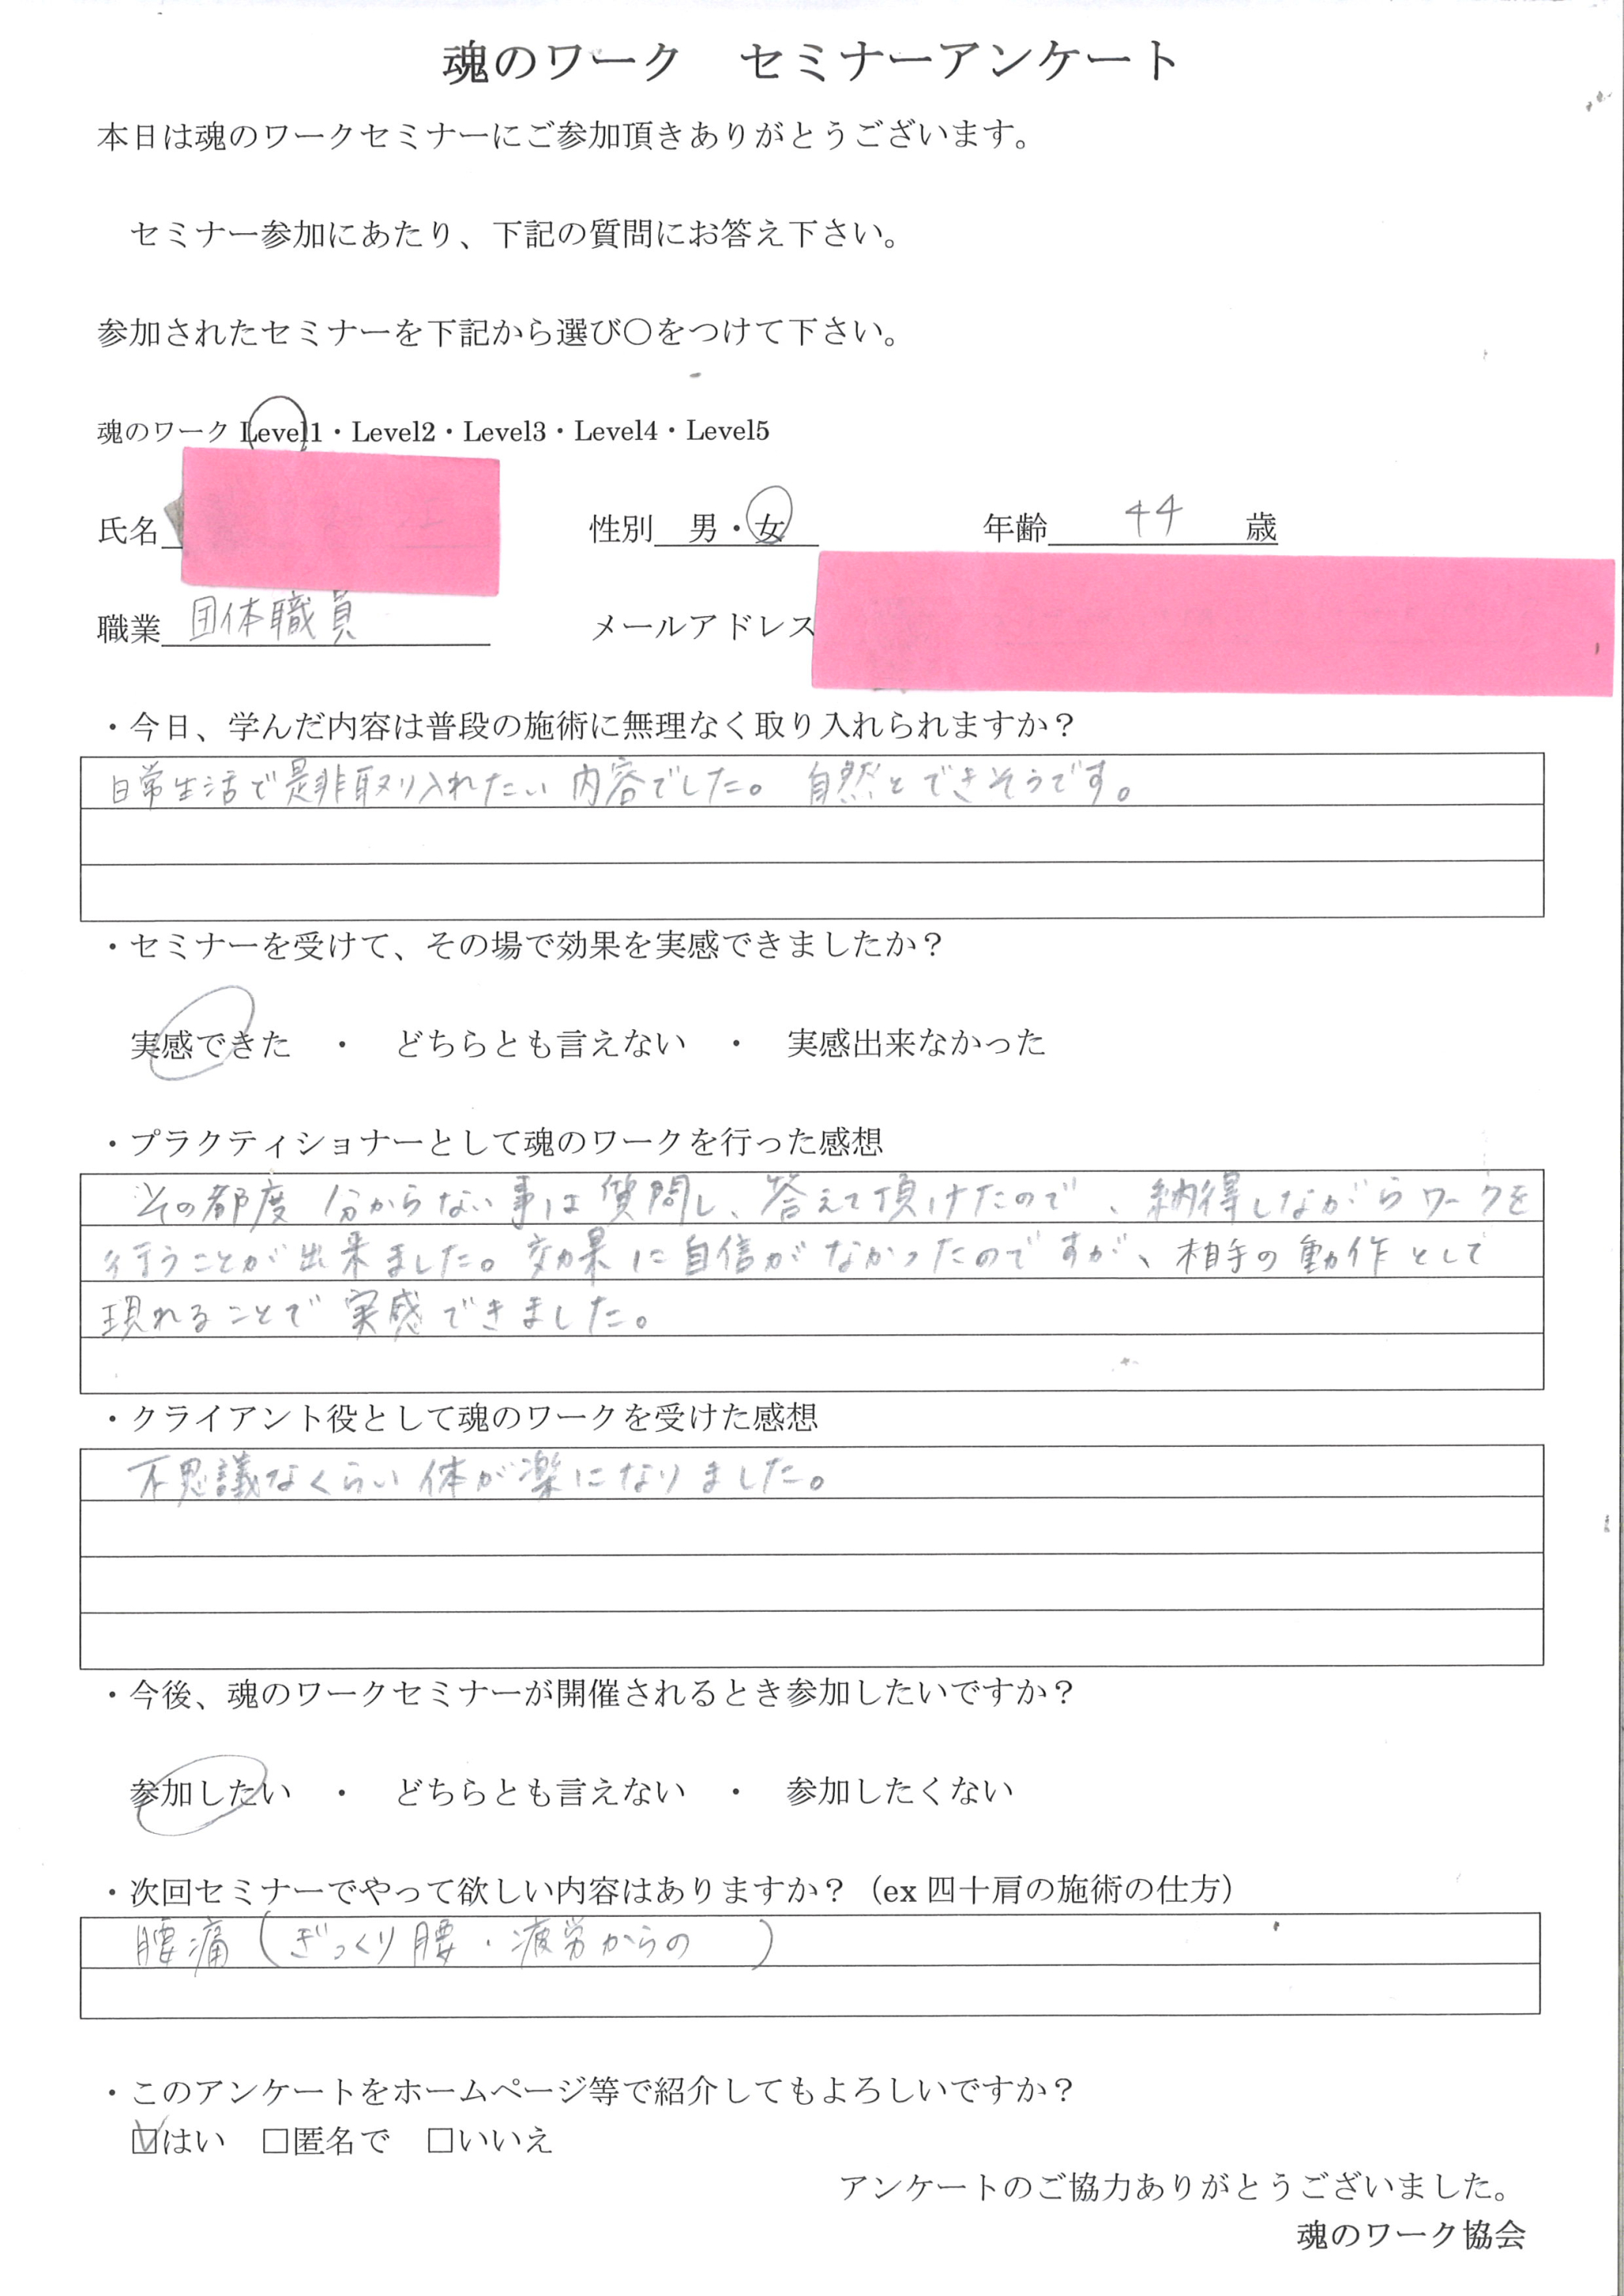 魂のワーク　セミナーアンケート
本日は魂のワークセミナーにご参加頂きありがとうございます。
セミナー参加にあたり、下記の質問にお答え下さい。
参加されたセミナーを下記から選び〇をつけて下さい。
魂のワーク Level1・Level2・Level3・Level4・Level5
氏名　性別　男・女　年齢　44　歳
職業　団体職員　メールアドレス
・今日、学んだ内容は普段の施術に無理なく取り入れられますか？
日常生活で是非取り入れたい内容でした。自然とできそうです。
・セミナーを受けて、その場で効果を実感できましたか？
実感できた　・　どちらとも言えない　・　実感出来なかった
・プラクティショナーとして魂のワークを行った感想
その都度分からない事は質問し、答えて頂けたので、納得しながらワークを
行うことが出来ました。効果に自信がなかったのですが、相手の動作として
現れることで実感できました。
・クライアント役として魂のワークを受けた感想
不思議なくらい体が楽になりました。
・今後、魂のワークセミナーが開催されるとき参加したいですか？
参加したい　・　どちらとも言えない　・　参加したくない
・次回セミナーでやって欲しい内容はありますか？（ex 四十肩の施術の仕方）
腰痛（ぎっくり腰・疲労からの　　）
・このアンケートをホームページ等で紹介してもよろしいですか？
☑はい　□匿名で　□いいえ
アンケートのご協力ありがとうございました。
魂のワーク協会